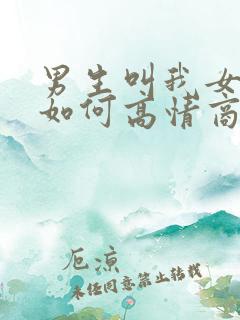 男生叫我女
如何高情商
厄凉
未经同意禁止转载